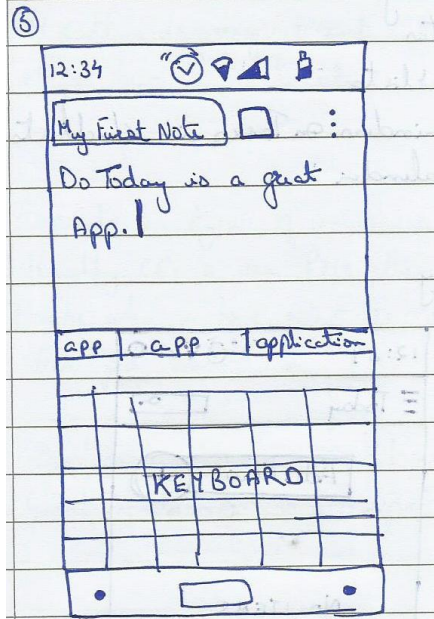 5
12:34
My First Note
Do Today is a great
App.
app app application
KEYBOARD